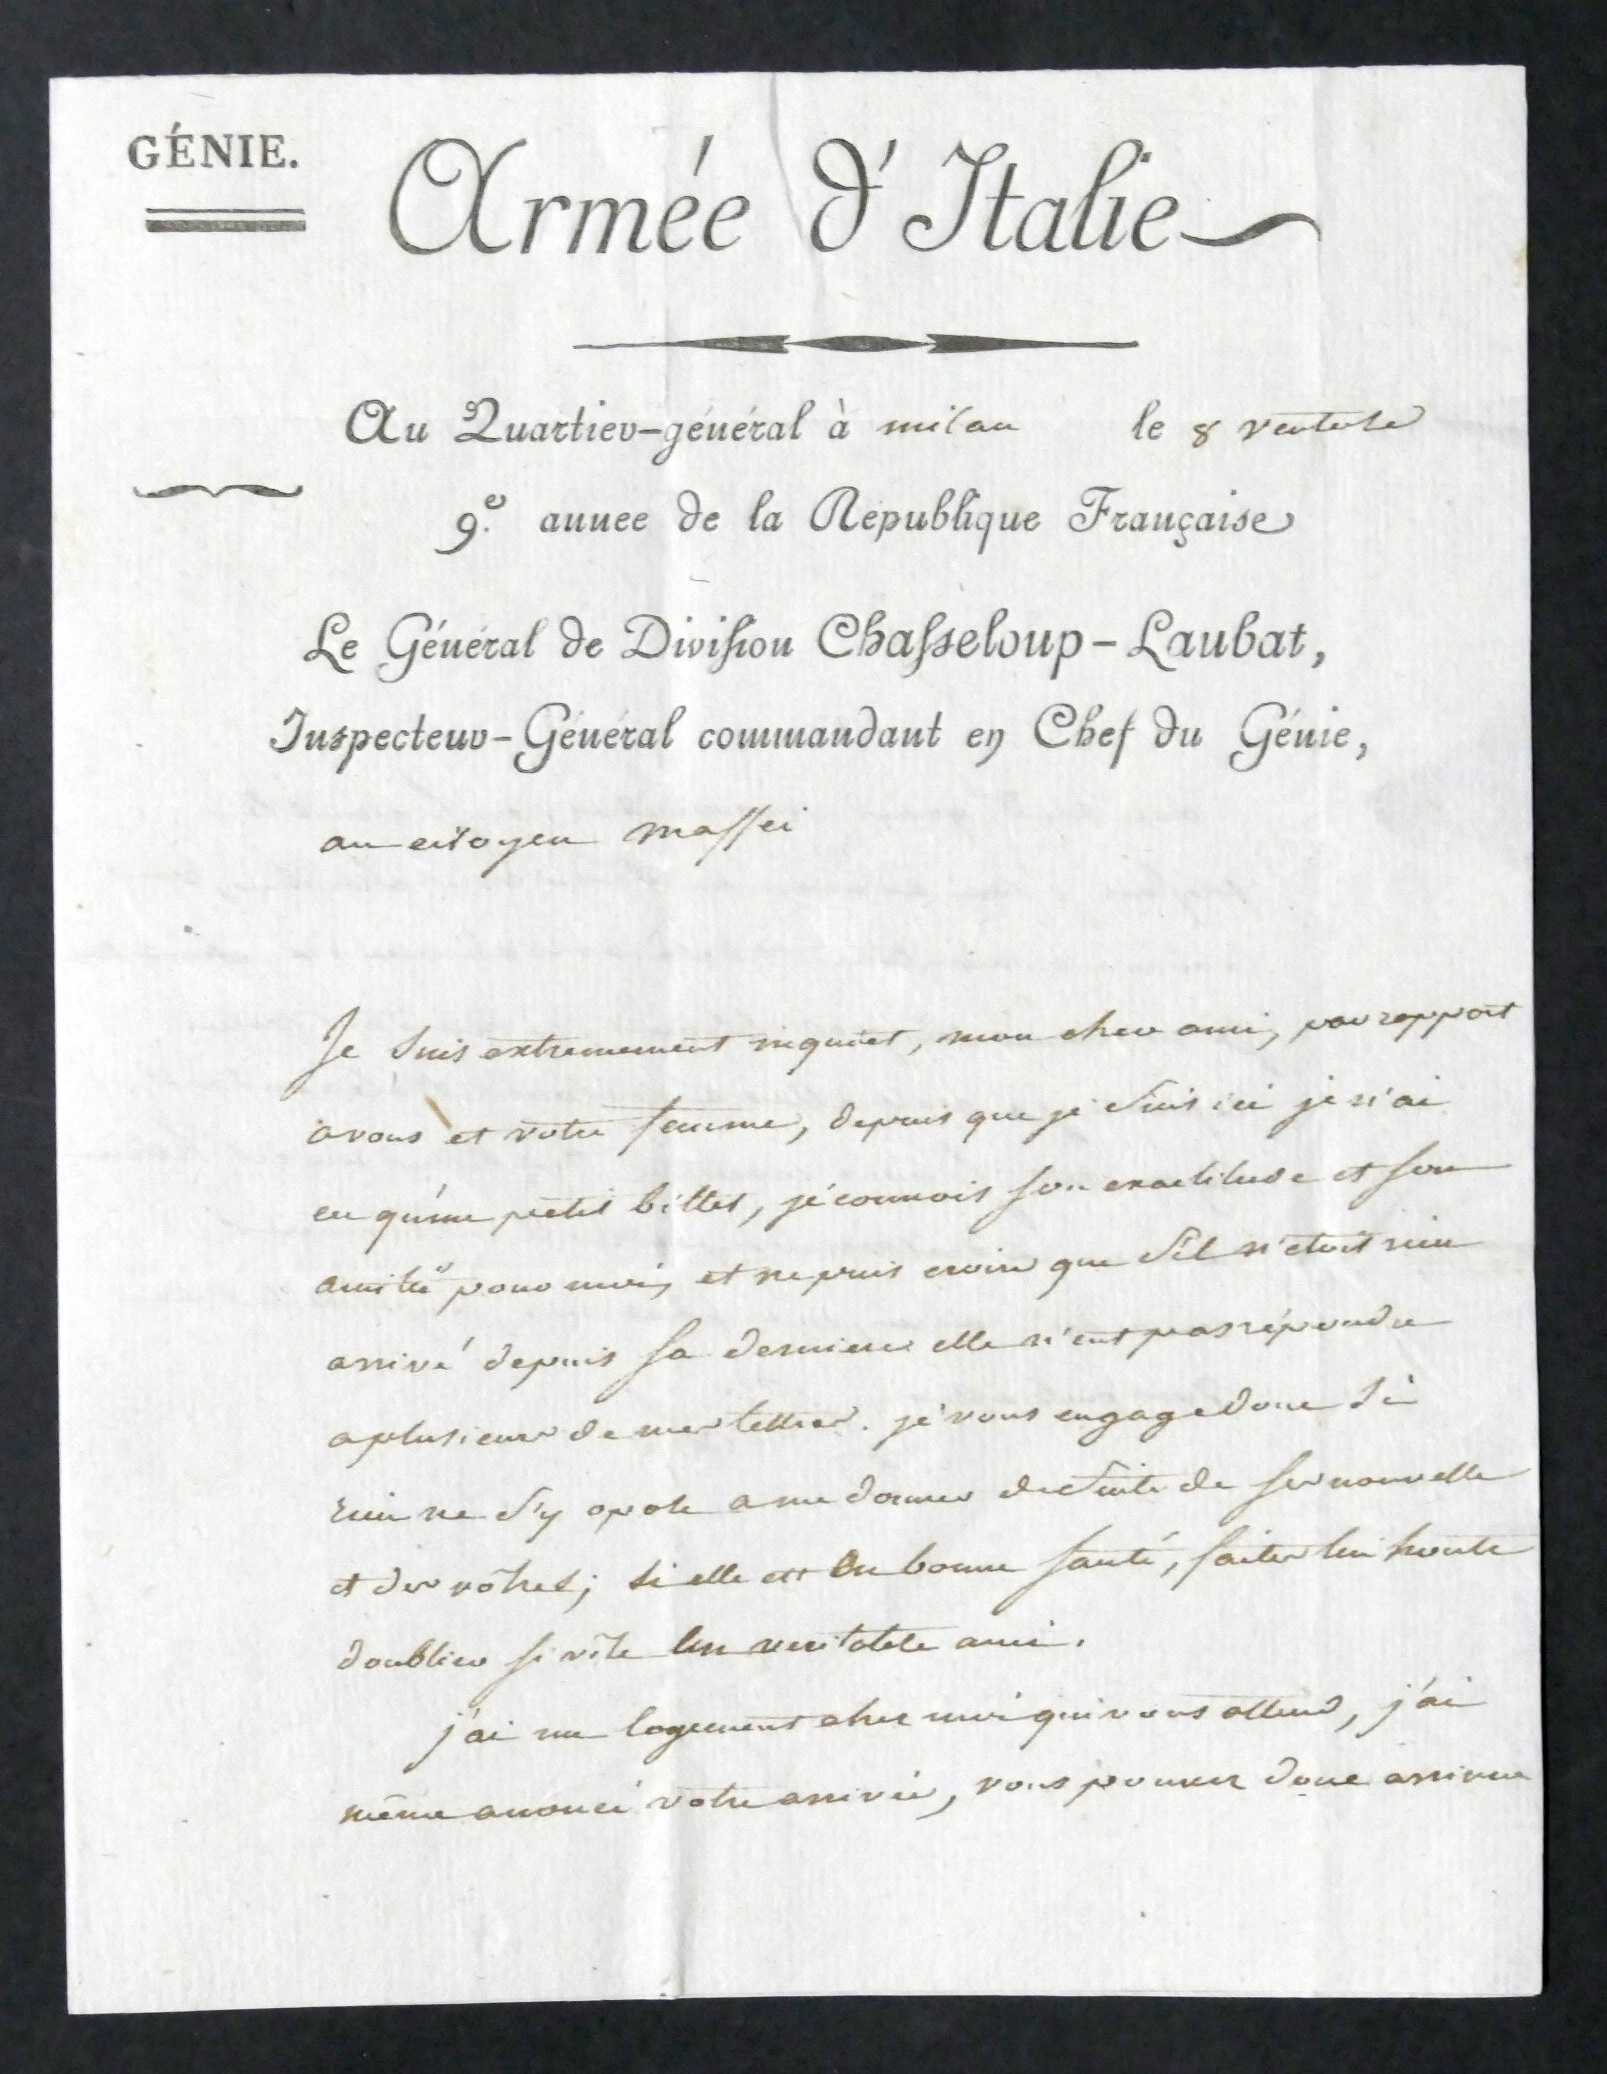 GÉNIE.
Armée d'Italie
Au Quartier-général à milan le 8 ventose
9.e annee de la Republique Française
Le Général de Division Chasseloup-Laubat,
Inspecteur-Général commandant en Chef du Génie,
au citoyen maffei
Je suis extremement inquiet, mon cher ami, par rapport
a vous et votre femme, depuis que je suis ici je n'ai
eu qu'un petit billet, je connois son exactitude et son
amitié pour moi, et ne puis croire que s'il n'etoit rien
arrivé depuis sa derniere elle n'eut pas répondu
a plusieurs de mes lettres. je vous engage donc si
rien ne s'y opose a me donner de suite de ses nouvelle
et des vôtres; si elle est en bonne santé, faites lui honte
doublier si vîte un veritable ami.
j'ai un logement chez moi qui vous attend, j'ai
même anoncé votre arrivée, vous pouvez donc arriver